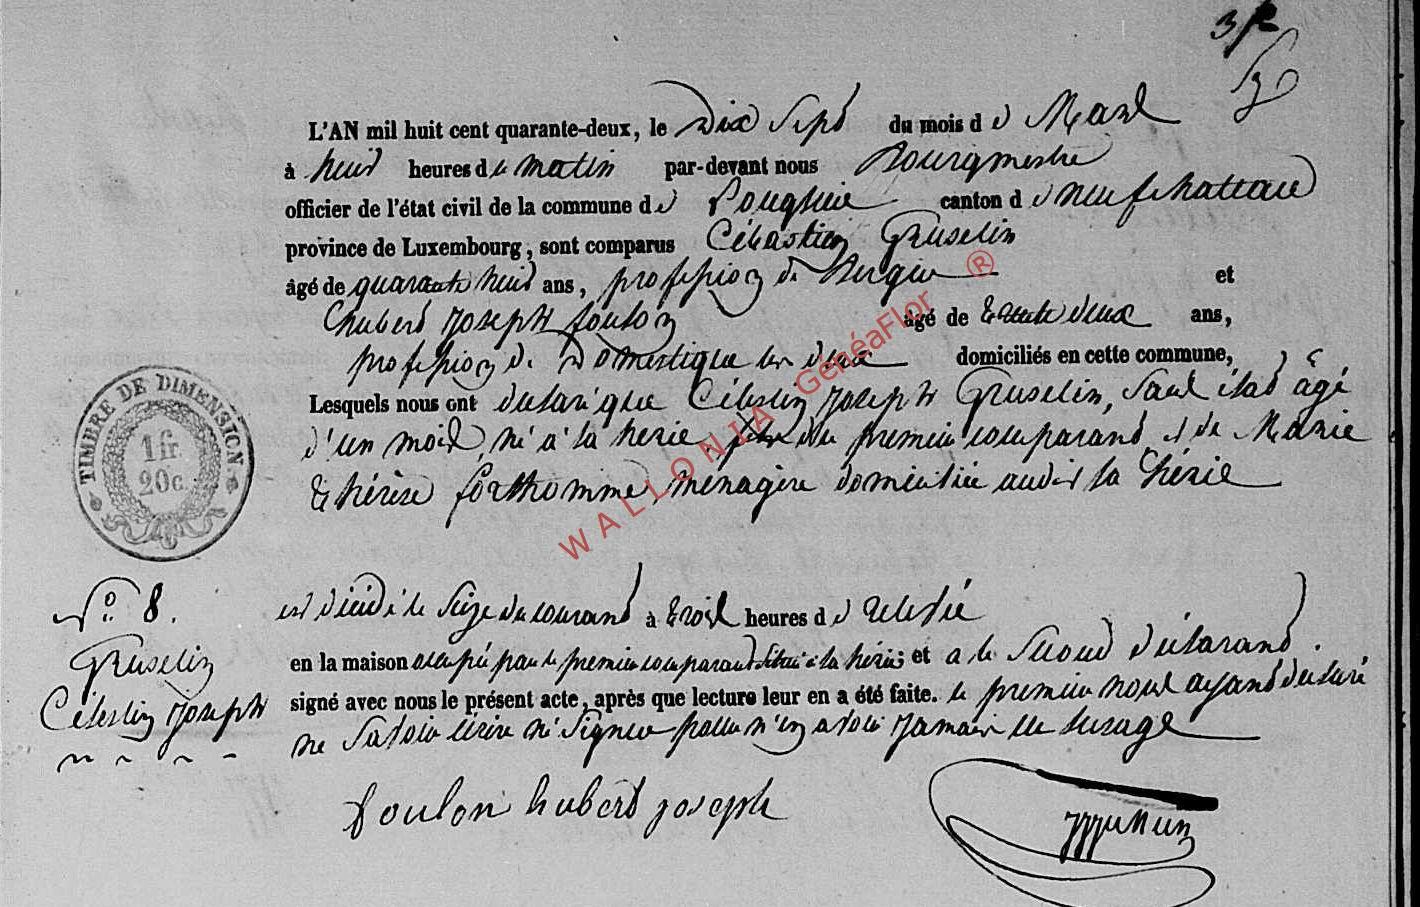 L'AN mil huit cent quarante-deux, le Dix Sept du mois d e Mars
à huit heures d u matin par-devant nous Bourgmestre
officier de l'état civil de la commune d e canton d e neufchateau
province de Luxembourg, sont comparus Célestin Gruselin
âgé de quarante huit ans, profession de Berger et
hubert joseph foulon âgé de trente deux ans,
profession de Domestique les deux domiciliés en cette commune,
Lesquels nous ont declaré que Célestin joseph Gruselin, Sans état âgé
d'un mois, né à la herie, fils du premier comparant et de Marie
thérèse forthomme, ménagère domiciliée audit la hérie
TIMBRE DE DIMENSION
1 fr.
20 c.
WALLONIA GénéaFlor ®
N° 8.
Gruselin
Célestin joseph
est décédé le Seize du courant à trois heures d e relevée
en la maison occupée par le premier comparant Située à la hérie et a le Second déclarant
signé avec nous le présent acte, après que lecture leur en a été faite. le premier nous ayant declaré
ne Savoir écrire ni Signer pour n'en avoir jamais eu l'usage
foulon hubert joseph